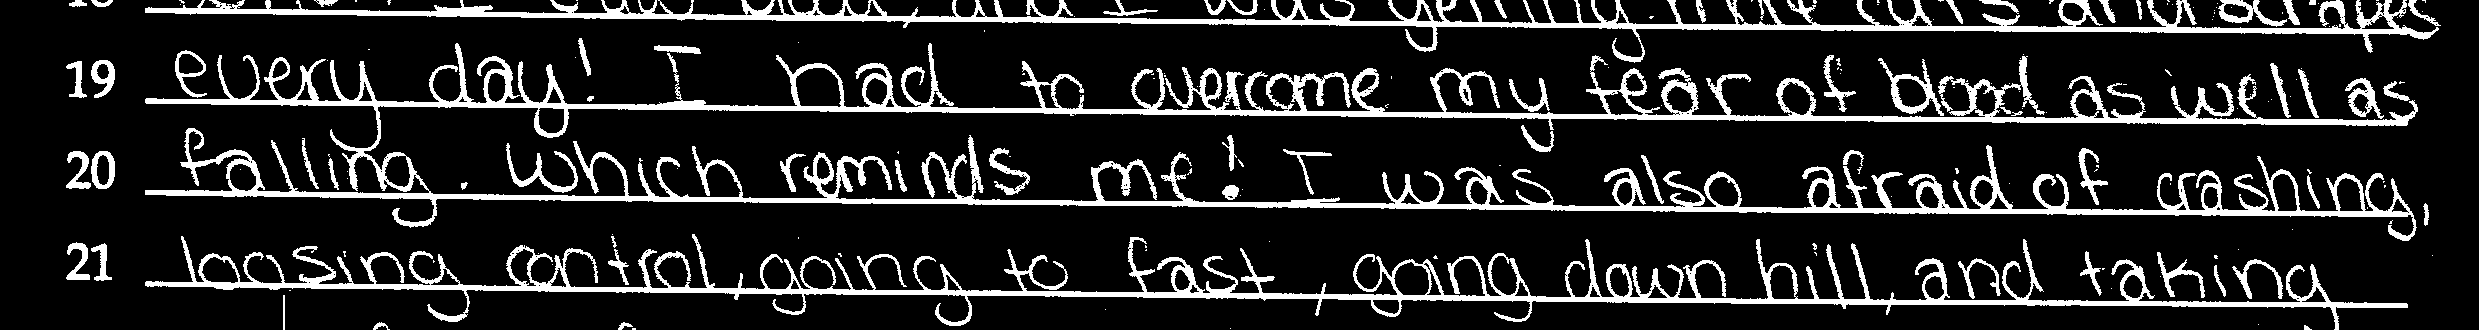 I saw blood, and I was getting more cuts and scrapes
19 every day! I had to overcome my fear of blood as well as
20 falling. Which reminds me! I was also afraid of crashing,
21 loosing control, going to fast, going down hill, and taking